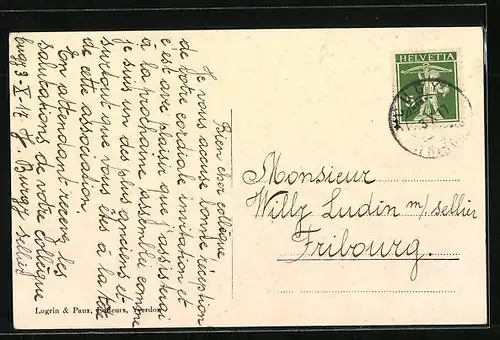 Bien cher collègue
Je vous accuse bonne réception
de votre cordiale invitation et
c'est avec plaisir que j'assisterai
à la prochaine assemblée comme
je suis un des plus anciens et
surtout que vous êtes à la tête
de cette association.
En attendant recevez les
salutations de votre collègue
3-X-17 J Burgy sellier
HELVETIA
Monsieur
Willy Ludin m/ sellier
Fribourg.
Lugrin & Paux, éditeurs, Yverdon